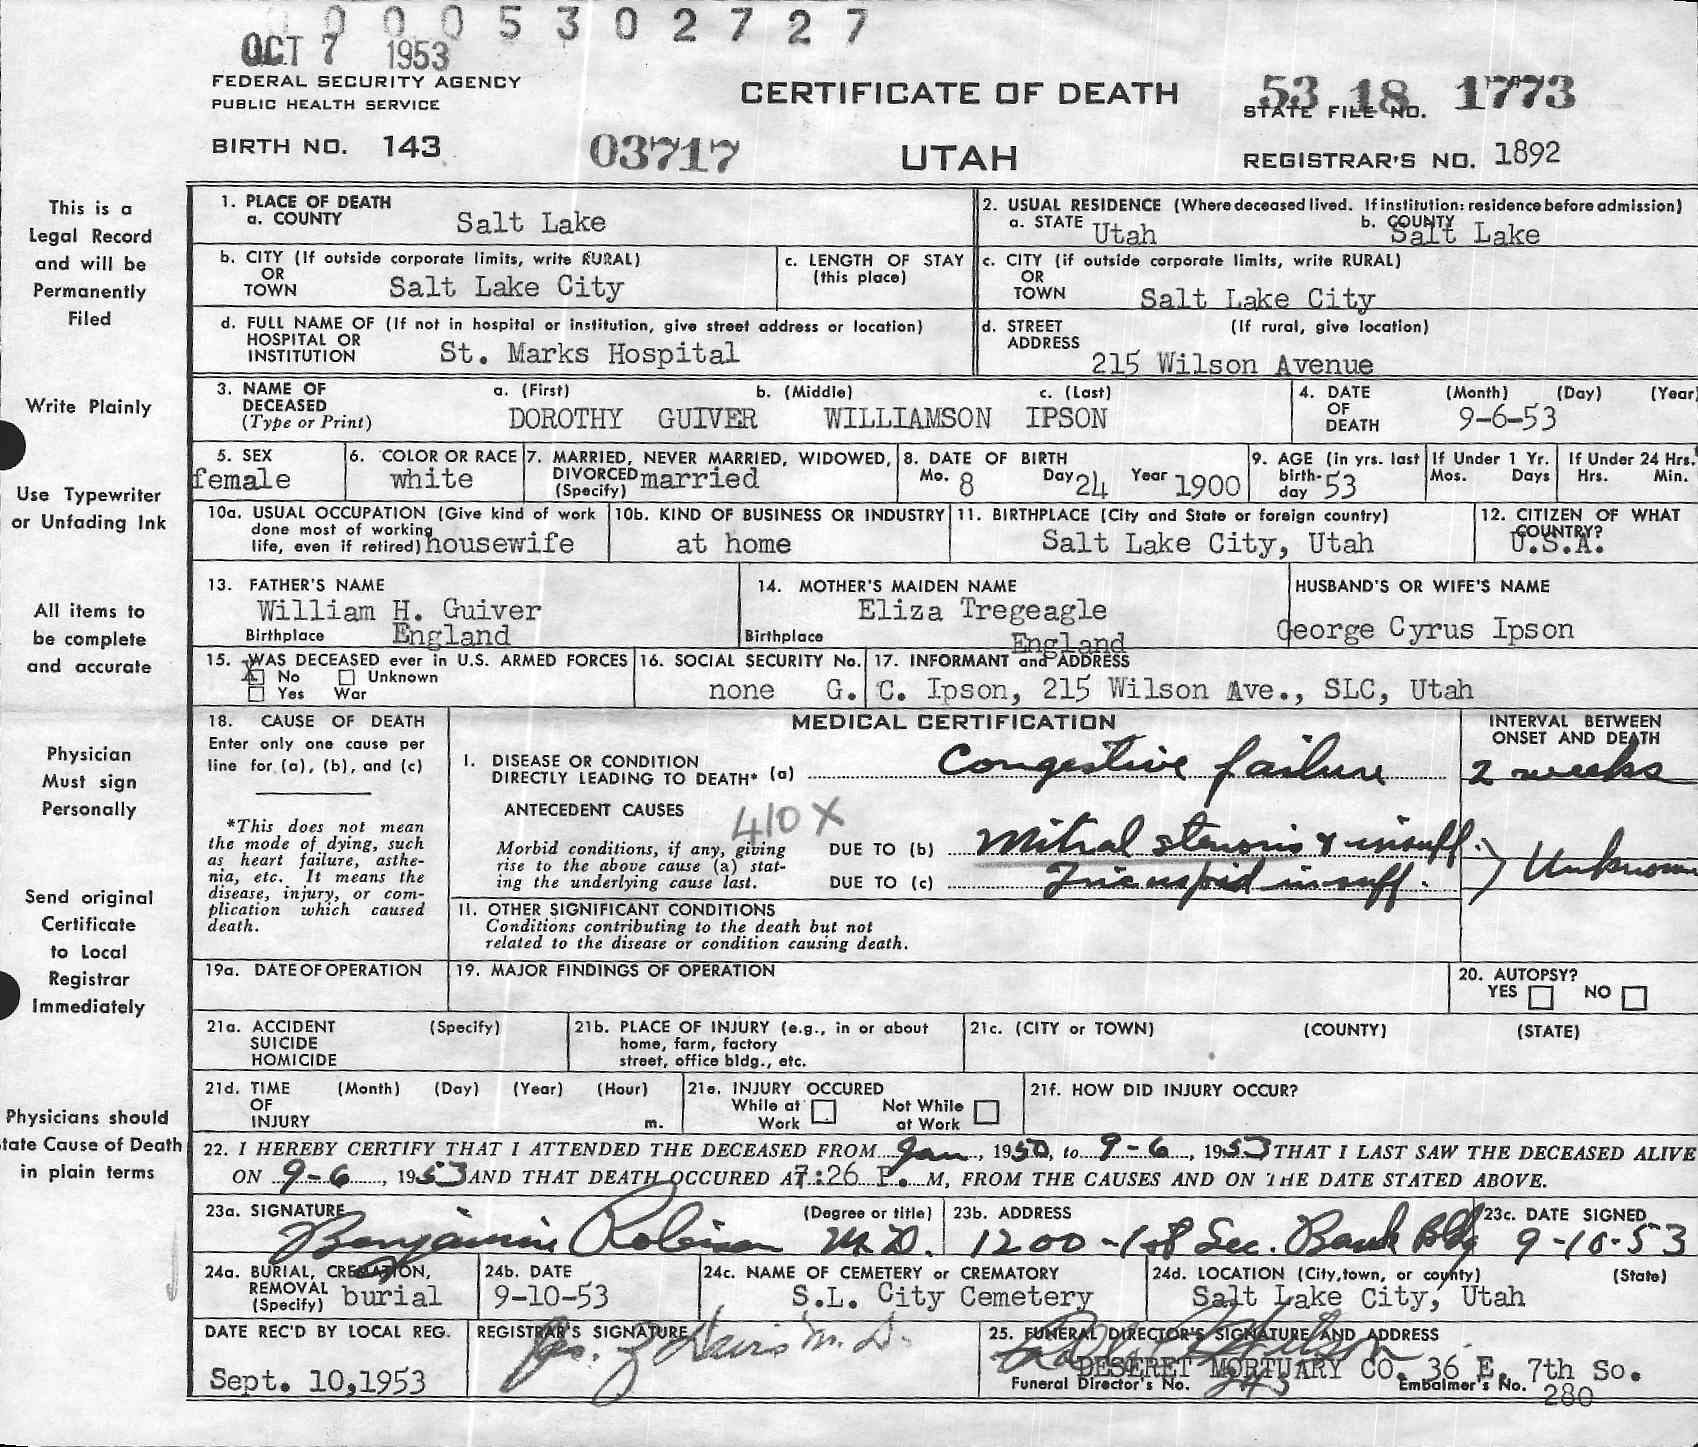 00005302727
OCT 7 1953
FEDERAL SECURITY AGENCY
PUBLIC HEALTH SERVICE
CERTIFICATE OF DEATH
53 18 1773
STATE FILE NO.
BIRTH NO. 143
03717
UTAH
REGISTRAR'S NO. 1892
This is a
Legal Record
and will be
Permanently
Filed
Write Plainly
Use Typewriter
or Unfading Ink
All items to
be complete
and accurate
Physician
Must sign
Personally
Send original
Certificate
to Local
Registrar
Immediately
Physicians should
tate Cause of Death
in plain terms
1. PLACE OF DEATH
a. COUNTY Salt Lake
2. USUAL RESIDENCE (Where deceased lived. If institution: residence before admission)
a. STATE Utah b. COUNTY Salt Lake
b. CITY (If outside corporate limits, write RURAL)
OR
TOWN Salt Lake City
c. LENGTH OF STAY
(this place)
c. CITY (if outside corporate limits, write RURAL)
OR
TOWN Salt Lake City
d. FULL NAME OF (If not in hospital or institution, give street address or location)
HOSPITAL OR
INSTITUTION St. Marks Hospital
d. STREET (If rural, give location)
ADDRESS
215 Wilson Avenue
3. NAME OF a. (First) b. (Middle) c. (Last)
DECEASED
(Type or Print) DOROTHY GUIVER WILLIAMSON IPSON
4. DATE (Month) (Day) (Year)
OF
DEATH 9-6-53
5. SEX
female
6. COLOR OR RACE
white
7. MARRIED, NEVER MARRIED, WIDOWED,
DIVORCED married
(Specify)
8. DATE OF BIRTH
Mo. 8 Day 24 Year 1900
9. AGE (in yrs. last
birth-
day 53
If Under 1 Yr.
Mos. Days
If Under 24 Hrs.
Hrs. Min.
10a. USUAL OCCUPATION (Give kind of work
done most of working
life, even if retired) housewife
10b. KIND OF BUSINESS OR INDUSTRY
at home
11. BIRTHPLACE (City and State or foreign country)
Salt Lake City, Utah
12. CITIZEN OF WHAT
COUNTRY?
U.S.A.
13. FATHER'S NAME
William H. Guiver
Birthplace England
14. MOTHER'S MAIDEN NAME
Eliza Tregeagle
Birthplace England
HUSBAND'S OR WIFE'S NAME
George Cyrus Ipson
15. WAS DECEASED ever in U.S. ARMED FORCES
X No Unknown
Yes War
16. SOCIAL SECURITY No.
none
17. INFORMANT and ADDRESS
G. C. Ipson, 215 Wilson Ave., SLC, Utah
18. CAUSE OF DEATH
Enter only one cause per
line for (a), (b), and (c)
*This does not mean
the mode of dying, such
as heart failure, asthe-
nia, etc. It means the
disease, injury, or com-
plication which caused
death.
MEDICAL CERTIFICATION
INTERVAL BETWEEN
ONSET AND DEATH
I. DISEASE OR CONDITION
DIRECTLY LEADING TO DEATH* (a) Congestive failure 2 weeks
ANTECEDENT CAUSES
410X
Morbid conditions, if any, giving
rise to the above cause (a) stat-
ing the underlying cause last.
DUE TO (b) Mitral stenosis & insuff. Unknown
DUE TO (c) Tricuspid insuff.
II. OTHER SIGNIFICANT CONDITIONS
Conditions contributing to the death but not
related to the disease or condition causing death.
19a. DATE OF OPERATION
19. MAJOR FINDINGS OF OPERATION
20. AUTOPSY?
YES NO
21a. ACCIDENT (Specify)
SUICIDE
HOMICIDE
21b. PLACE OF INJURY (e.g., in or about
home, farm, factory
street, office bldg., etc.
21c. (CITY or TOWN) (COUNTY) (STATE)
21d. TIME (Month) (Day) (Year) (Hour)
OF
INJURY m.
21e. INJURY OCCURED
While at Work Not While at Work
21f. HOW DID INJURY OCCUR?
22. I HEREBY CERTIFY THAT I ATTENDED THE DECEASED FROM Jan, 1950, to 9-6, 1953 THAT I LAST SAW THE DECEASED ALIVE
ON 9-6, 1953 AND THAT DEATH OCCURED AT 7:26 P. M, FROM THE CAUSES AND ON THE DATE STATED ABOVE.
23a. SIGNATURE (Degree or title)
Benjamin Robison M.D.
23b. ADDRESS
1200 - 1st Sec. Bank Bldg
23c. DATE SIGNED
9-10-53
24a. BURIAL, CREMATION,
REMOVAL
(Specify) burial
24b. DATE
9-10-53
24c. NAME OF CEMETERY or CREMATORY
S.L. City Cemetery
24d. LOCATION (City, town, or county) (State)
Salt Lake City, Utah
DATE REC'D BY LOCAL REG.
Sept. 10, 1953
REGISTRAR'S SIGNATURE
25. FUNERAL DIRECTOR'S SIGNATURE AND ADDRESS
DESERET MORTUARY CO. 36 E. 7th So.
Funeral Director's No. Embalmer's No. 280